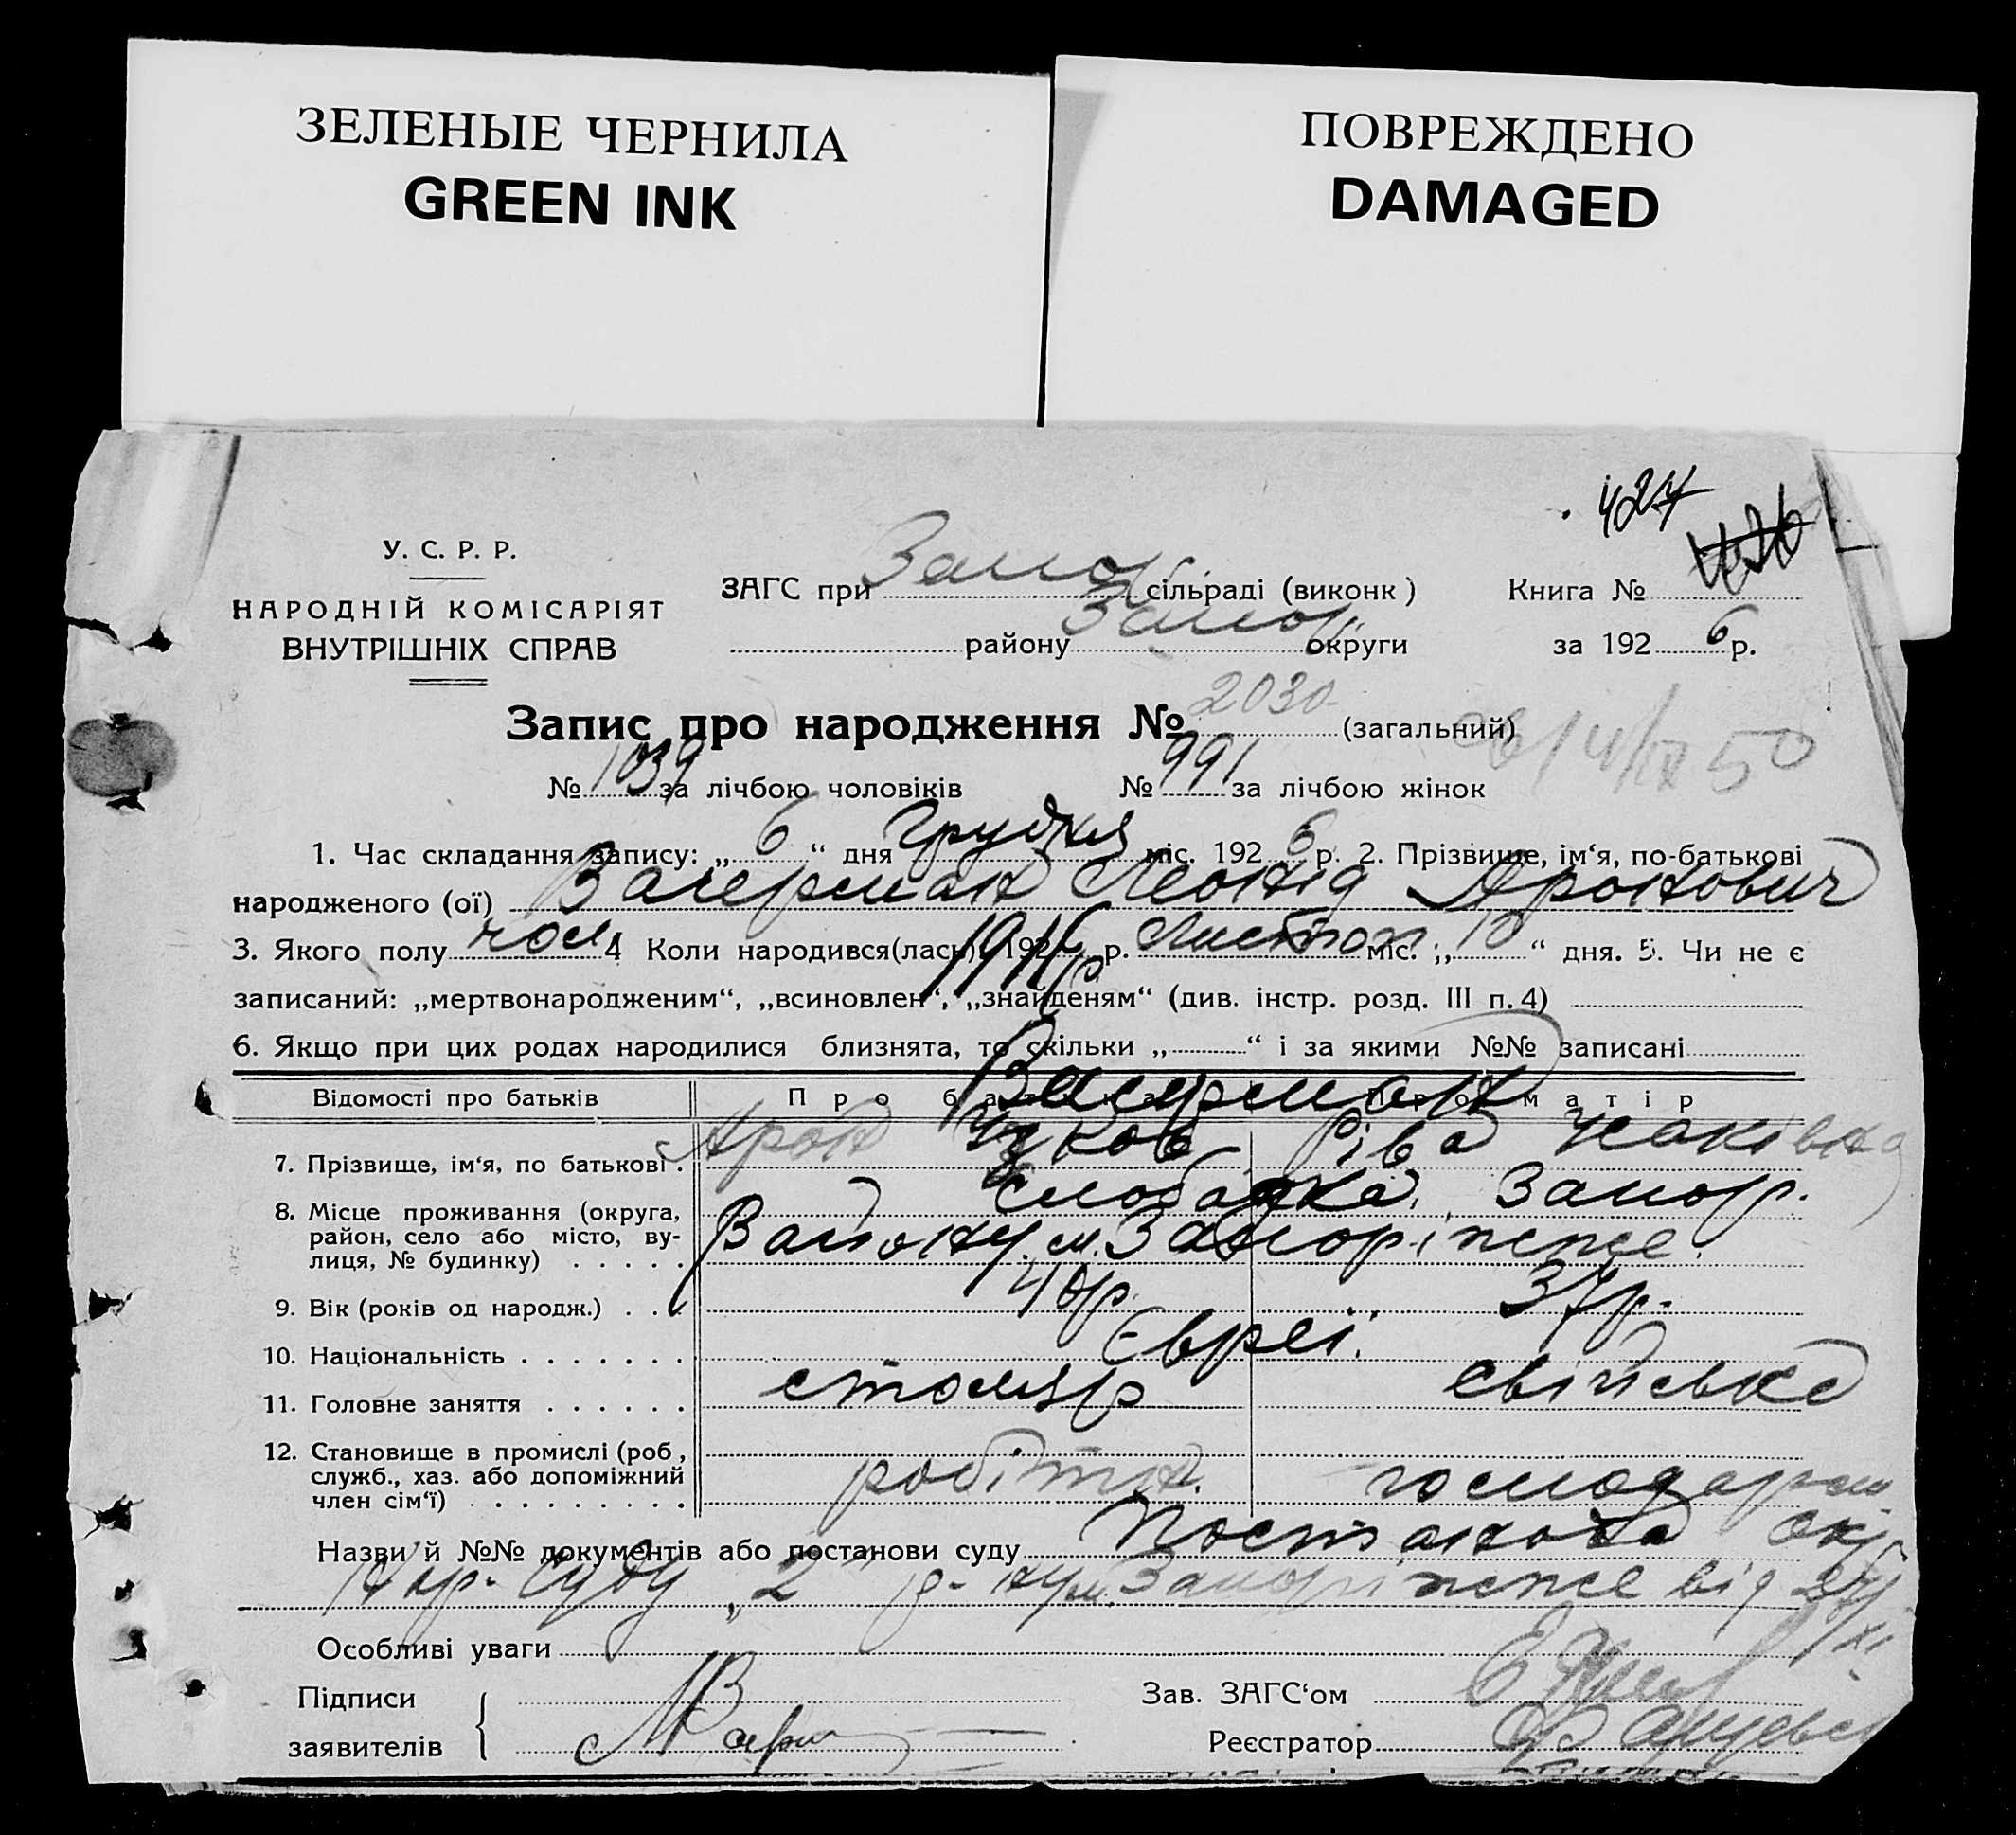 ЗЕЛЕНЫЕ ЧЕРНИЛА
GREEN INK
ПОВРЕЖДЕНО
DAMAGED
427
У. С. Р. Р.
НАРОДНІЙ КОМІСАРІЯТ
ВНУТРІШНІХ СПРАВ
ЗАГС при Запор. сільраді (виконк)
району Запор. округи
Книга №
за 1926 р.
Запис про народження № 2030 (загальний)
№ 1039 за лічбою чоловіків № 991 за лічбою жінок
1. Час складання запису: „6“ дня Грудня міс. 1926 р. 2. Прізвище, ім‘я, по-батькові
народженого (ої) Вагерман Леонід Аронович
3. Якого полу чол. 4 Коли народився(лась) 1916 р. Листоп. міс. „10“ дня. 5. Чи не є
записаний: „мертвонародженим“, „всиновлен“, „знайденям“ (див. інстр. розд. III п. 4)
6. Якщо при цих родах народилися близнята, то скільки „ “ і за якими №№ записані
Відомості про батьків Про батька Про матір
Вагерман
7. Прізвище, ім‘я, по батькові . Арон Ріва
8. Місце проживання (округа,
район, село або місто, ву-
лиця, № будинку) . . . . .
Слободка, Запор.
м. Запоріжжє.
9. Вік (років од народж.) . . . 40 р. 37 р.
10. Національність . . . . . . . Євреї.
11. Головне заняття . . . . . . столяр свійська
12. Становище в промислі (роб,
служб., хаз. або допоміжний
член сім‘ї) . . . . . . . . .
робітн. господарка
Назви й №№ документів або постанови суду Постанова Окр
Нар. Суду „2 м. Запоріжжє від
Особливі уваги
Підписи
заявителів
Зав. ЗАГС‘ом
Реєстратор